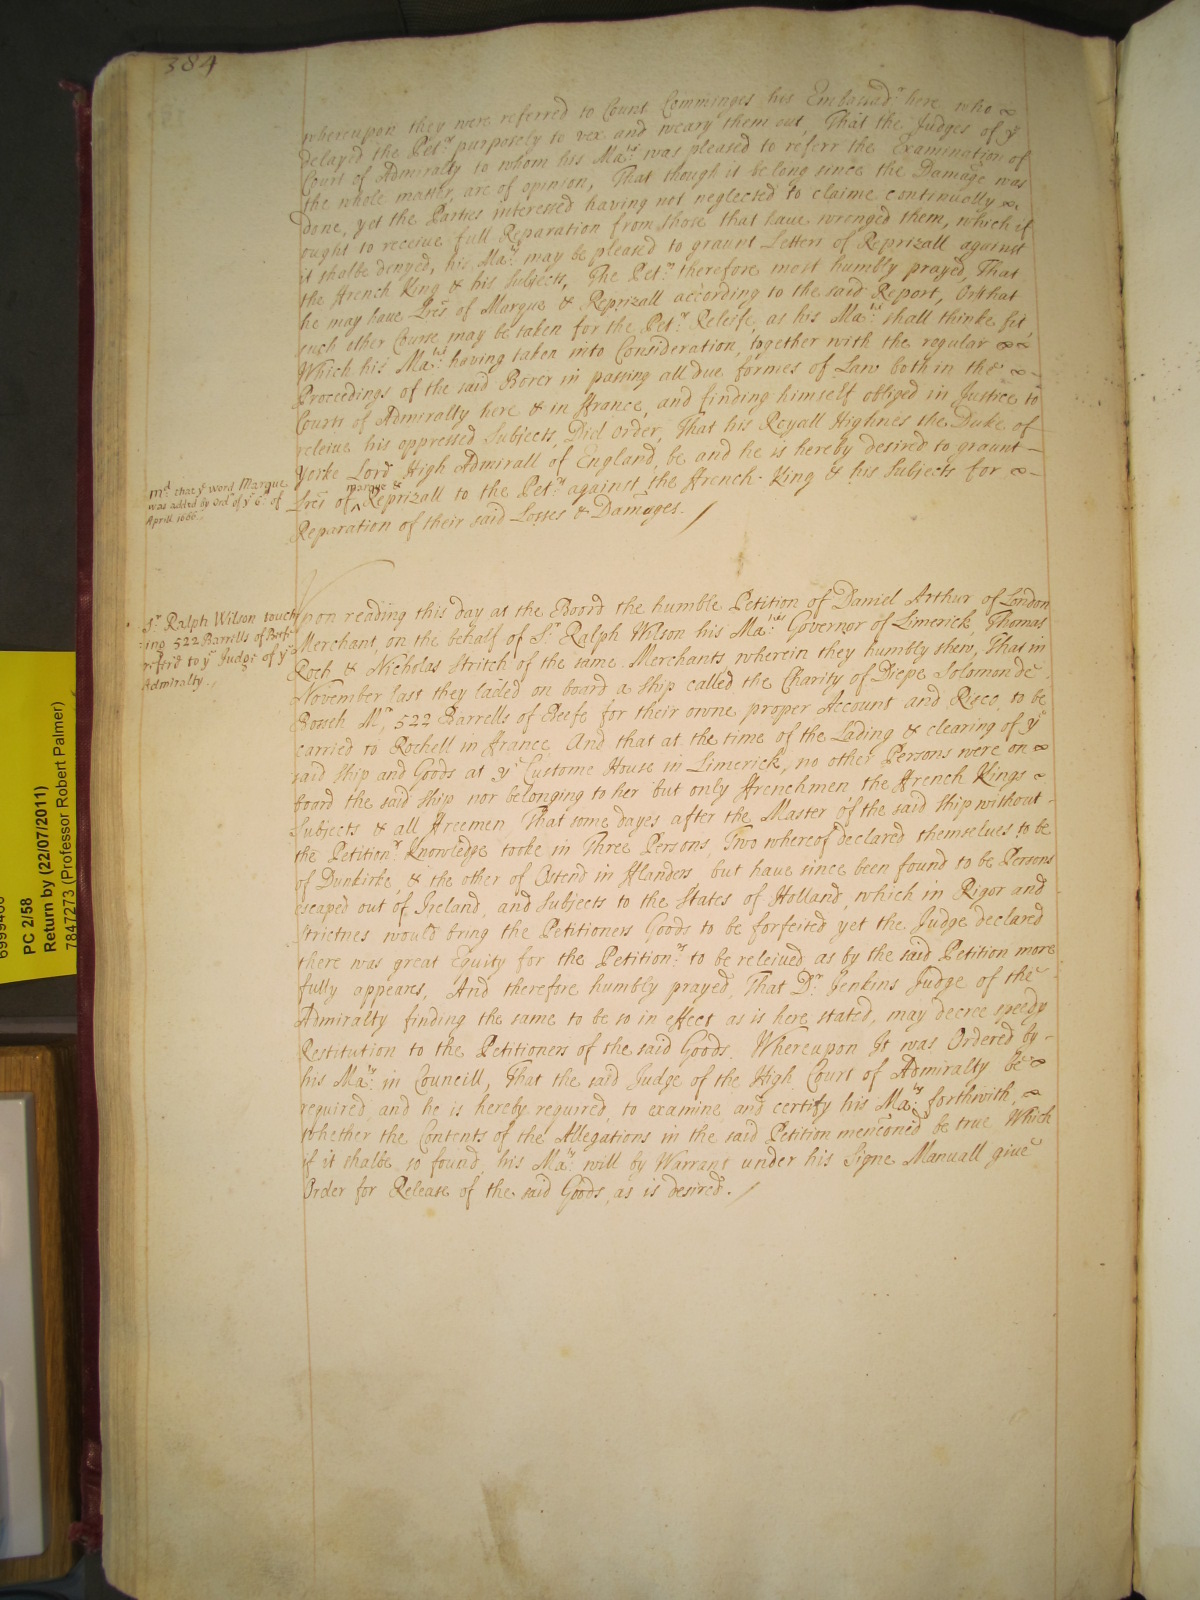 384
whereupon they were referred to Count Comminges his Embassad.r here who
delayed the Pet.r purposely to vex and weary them out, That the Judges of ye
Court of Admiralty to whom his Ma.tie was pleased to referr the Examination of
the whole matter, are of opinion, That though it be long since the Damage was
done, yet the Parties interessed having not neglected to claime continually
ought to receive full Reparation from those that have wronged them, which if
it shalbe denyed, his Ma.tie may be pleased to graunt Letters of Reprizall against
the French King & his Subjects, The Pet.r therefore most humbly prayed, That
he may have Lres of Marque & Reprizall according to the said Report, Or that
such other Course may be taken for the Pet.rs Releife, as his Ma.tie shall thinke fit,
Which his Ma.tie having taken into Consideration, together with the regular
Proceedings of the said Borer in passing all due formes of Law both in the
Courts of Admiralty here & in France, and finding himself obliged in Justice to
releive his oppressed Subjects, Did Order, That his Royall Highnes the Duke of
Yorke Lord High Admirall of England, be and he is hereby desired to graunt
md. that ye word Marque
was added by Ord.r of ye 6.th of
Aprill 1666.
marque &
Lres of ^ Reprizall to the Pet.r against the French King & his Subjects for
Reparation of their said Losses & Damages.
Sr. Ralph Wilson touch
ing 522 Barrells of Beefe
referd to ye Judge of ye
Admiralty.
Upon reading this day at the Board the humble Petition of Daniel Arthur of London
Merchant, on the behalf of Sr. Ralph Wilson his Ma.ties Governor of Limerick, Thomas
Roch & Nicholas Stritch of the same Merchants wherein they humbly shew, That in
November last they laded on board a Ship called the Charity of Diepe Solomon de
Bosseh Mr, 522 Barrells of Beefe for their owne proper Account and Risco, to be
carried to Rochell in France And that at the time of the Lading & clearing of ye
said Ship and Goods at ye Custome House in Limerick, no other Persons were on
board the said Ship nor belonging to her but only Frenchmen the French Kings
Subjects & all Freemen, That some dayes after the Master of the said Ship without
the Petition.rs Knowledge tooke in Three Persons, Two whereof declared themselves to be
of Dunkirke, & the other of Ostend in Flanders, but have since been found to be Persons
escaped out of Ireland, and Subjects to the States of Holland, which in Rigor and
Strictnes would bring the Petitioners Goods to be forfeited yet the Judge declared
there was great Equity for the Petition.rs to be releived as by the said Petition more
fully appeares, And therefore humbly prayed, That Dr. Jenkins Judge of the
Admiralty finding the same to be so in effect as is here stated, may decree speedy
Restitution to the Petitioners of the said Goods. Whereupon It was Ordered by
his Ma.ty in Councill, That the said Judge of the High Court of Admiralty be
required, and he is hereby required, to examine and certify his Ma.ty forthwith,
whether the Contents of the Allegations in the said Petition mencõned be true Which
if it shalbe so found, his Ma.ty will by Warrant under his Signe Manuall give
Order for Release of the said Goods, as is desired.
PC 2/58
Return by (22/07/2011)
7847273 (Professor Robert Palmer)